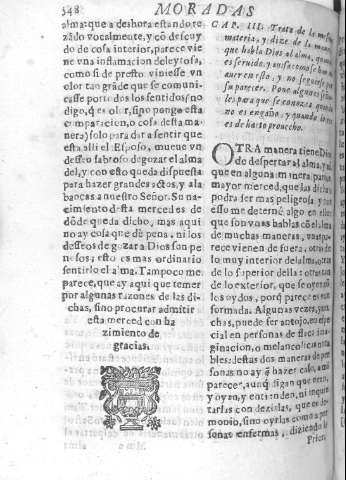 548 MORADAS
alma: que a deshora estando re
zãdo vocalmente, y cõ descuy
do de cosa interior, parece vie
ne vna inflamacion deleytosa,
como si de presto viniesse vn
olor tan grãde que se comuni-
casse por todos los sentidos (no
digo, q̃ es olor, sino pongo esta
comparacion, o cosa desta ma
nera) solo para dar a sentir que
esta alli el Esposo, mueue vn
desseo sabroso de gozar el alma
del, y con esto queda dispuesta
para hazer grandes actos, y ala
bancas a nuestro Señor. Su na-
cimiento desta merced es de
dõde queda dicho, mas aqui
no ay cosa que dè pena, ni los
desseos de gozar a Dios son pe
nosos; esto es mas ordinario
sentirlo el alma. Tampoco me
parece, que ay aqui que temer
por algunas razones de las di-
chas, sino procurar admitir
esta merced con ha
zimiento de
gracias.
CAP. III. Trata de la misma
materia, y dize de la manera
que habla Dios al alma, quando
es seruido, y auisa como se han de
auer en esto, y no seguirse por
su parecer. Pone algunas señales
para que se conozca quando
no es engaño, y quando lo es:
es de harto prouecho.
OTRA manera tiene Dios
de despertar al alma, y aun
que en alguna manera parece
mayor merced, que las dichas
podra ser mas peligrosa, y por
esso me deternè algo en ella,
que son vnas hablas cõ el alma
de muchas maneras, vnas pa-
rece vienen de fuera, otras de
lo muy interior del alma, otras
de lo superior della: otras tan
de lo exterior, que se oyen con
los oydos, porq̃ parece es voz
formada. Algunas vezes, y mu
chas, puede ser antojo, en espe
cial en personas de flaca ima-
ginacion, o melancolicas nota
bles: destas dos maneras de per
sonas no ay q̃ hazer caso, a mi
parecer, aunq̃ digan que veen,
y oyen, y entienden, ni inquie
tarlas con dezirlas, que es de-
monio, sino oyrlas como a per
sonas enfermas, diziendo la
Priora